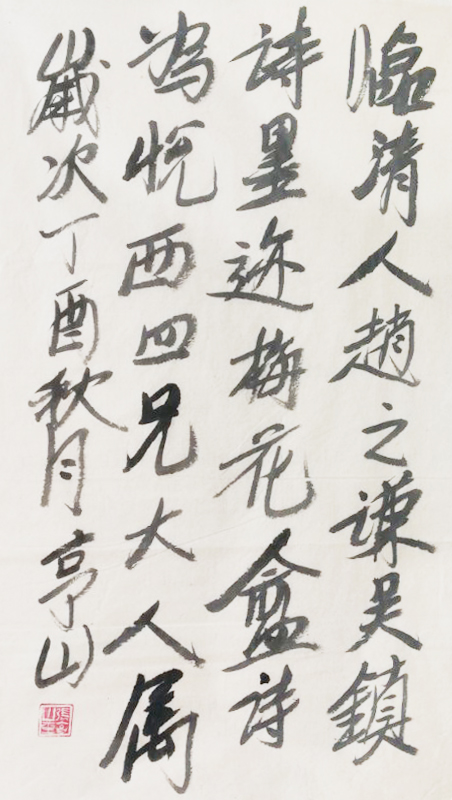 臨清人趙之謙吴鎮
詩墨迹梅花盦詩
為悦西四兄大人属
歲次丁酉秋月亭山